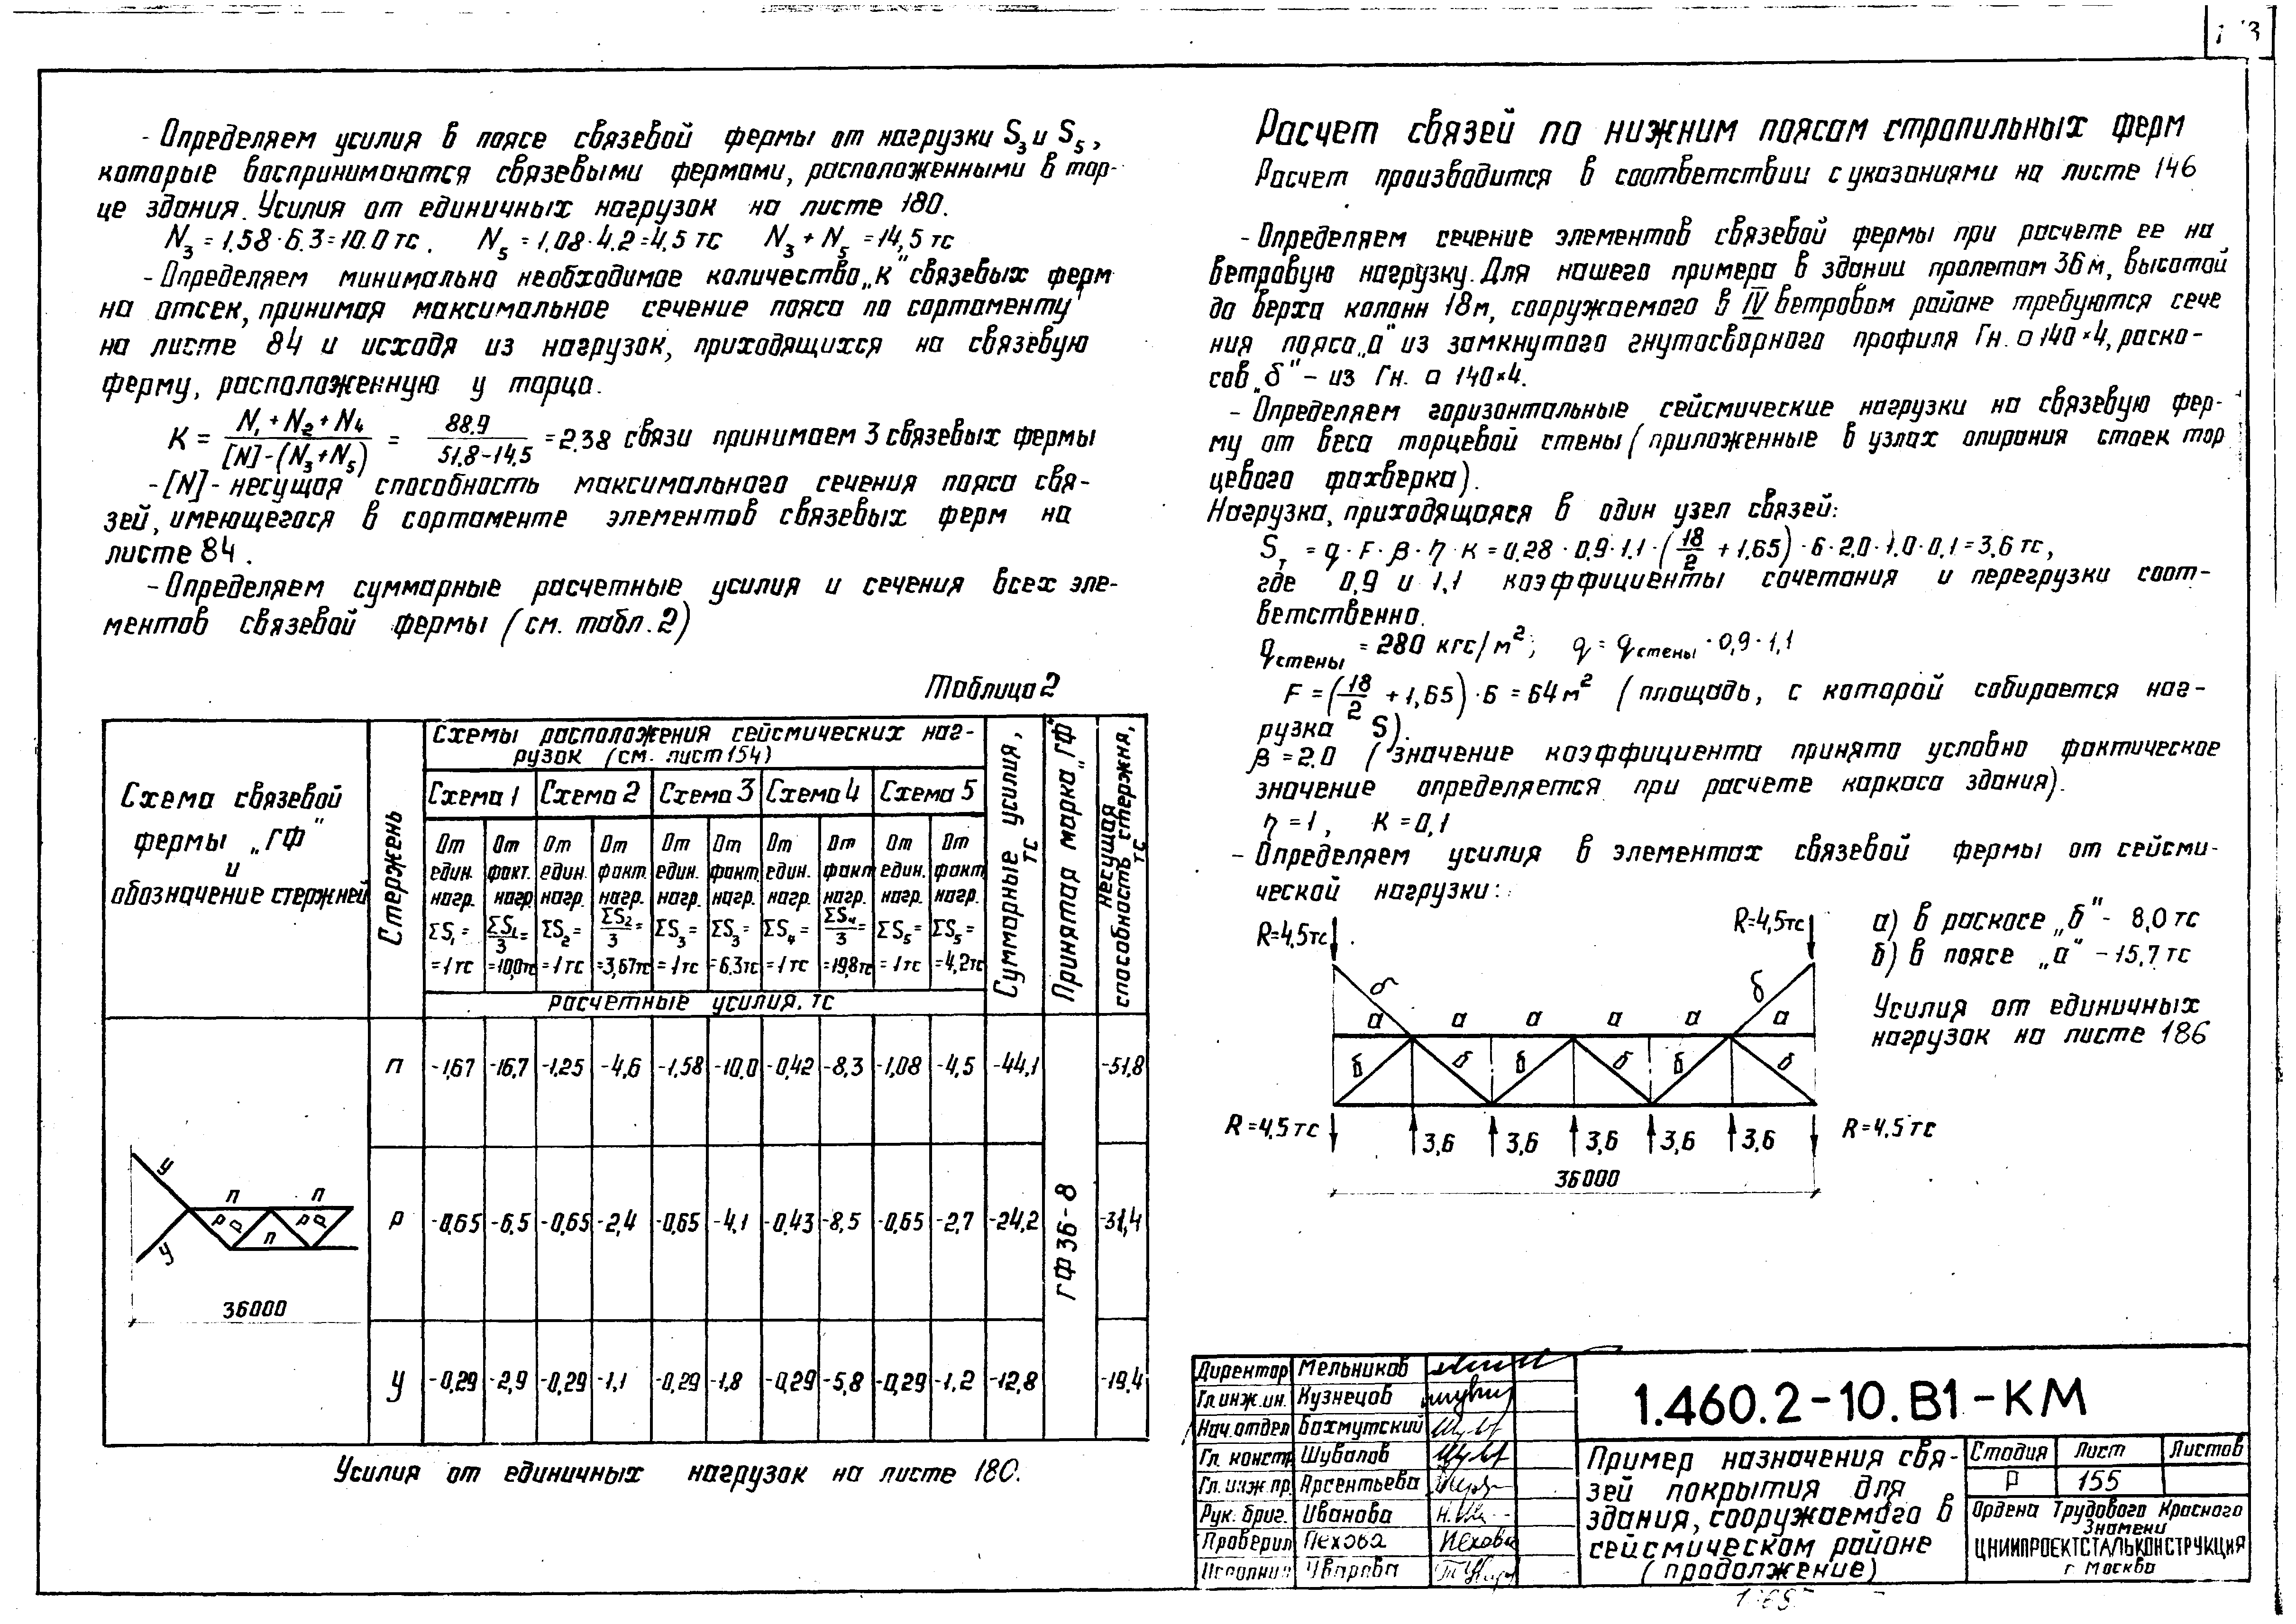 - Определяем усилия в поясе связевой фермы от нагрузки S₃ и S₅,
которые воспринимаются связевыми фермами, расположенными в тор-
це здания. Усилия от единичных нагрузок на листе 180.
N₃ = 1.58 · 6.3 = 10.0 тс. N₅ = 1,08 · 4.2 = 4,5 тс N₃ + N₅ = 14,5 тс
- Определяем минимально необходимое количество „К" связевых ферм
на отсек, принимая максимальное сечение пояса по сортаменту
на листе 84 и исходя из нагрузок, приходящихся на связевую
ферму, расположенную у торца.
К = (N₁ + N₂ + N₄) / ([N] - (N₃ + N₅)) = 88.9 / (51.8 - 14,5) = 2.38 связи принимаем 3 связевых фермы
- [N] - несущая способность максимального сечения пояса свя-
зей, имеющегося в сортаменте элементов связевых ферм на
листе 84.
- Определяем суммарные расчетные усилия и сечения всех эле-
ментов связевой фермы (см. табл. 2)
Таблица 2
Схема связевой фермы „ГФ" и обозначение стержней
Стержень
Схемы расположения сейсмических наг-
рузок (см. лист 154)
Суммарные усилия, тс
Принятая марка „ГФ"
несущая способность стержня, тс
Схема 1 Схема 2 Схема 3 Схема 4 Схема 5
От От От От От От От От От От
един. факт. един. факт. един. факт. един. факт един. факт
нагр. нагр нагр. нагр. нагр. нагр. нагр. нагр. нагр. нагр.
ΣS₁ = ΣS₁/3 = ΣS₂ = ΣS₂/3 = ΣS₃ = ΣS₃ = ΣS₄ = ΣS₄/3 = ΣS₅ = ΣS₅ =
= 1 тс = 10,0 тс = 1 тс = 3,67 тс = 1 тс = 6.3 тс = 1 тс = 19,8 тс = 1 тс = 4,2 тс
расчетные усилия, тс
п -1,67 -16,7 -1,25 -4,6 -1,58 -10,0 -0,42 -8,3 -1,08 -4,5 -44,1 -51,8
Р -0,65 -6,5 -0,65 -2,4 -0,65 -4,1 -0,43 -8,5 -0,65 -2,7 -24,2 -31,4
У -0,29 -2,9 -0,29 -1,1 -0,29 -1,8 -0,29 -5,8 -0,29 -1,2 -12,8 -19,4
ГФ36-8
у
п п
Р Р Р Р
п
у
36000
Усилия от единичных нагрузок на листе 180.
Расчет связей по нижним поясам стропильных ферм
Расчет производится в соответствии с указаниями на листе 146
- Определяем сечение элементов связевой фермы при расчете ее на
ветровую нагрузку. Для нашего примера в здании пролетом 36 м, высотой
до верха колонн 18 м, сооружаемого в IV ветровом районе требуются сече
ния пояса „а" из замкнутого гнутосварного профиля Гн. □ 140 × 4, раско-
сов „б" - из Гн. □ 140 × 4.
- Определяем горизонтальные сейсмические нагрузки на связевую фер-
му от веса торцевой стены (приложенные в узлах опирания стоек тор
цевого фахверка).
Нагрузка, приходящаяся в один узел связей:
Sт = q · F · β · η · к = 0.28 · 0,9 · 1.1 · (18/2 + 1.65) · 6 · 2,0 · 1.0 · 0,1 = 3,6 тс,
где 0,9 и 1,1 коэффициенты сочетания и перегрузки соот-
ветственно.
qстены = 280 кгс/м²; q = qстены · 0,9 · 1,1
F = (18/2 + 1,65) · 6 = 64 м² (площадь, с которой собирается наг-
рузка S).
β = 2.0 (значение коэффициента принято условно фактическое
значение определяется при расчете каркаса здания).
η = 1, К = 0,1
- Определяем усилия в элементах связевой фермы от сейсми-
ческой нагрузки:
R=4,5тс R=4,5тс
а) в раскосе „б" - 8,0 тс
б) в поясе „а" - 15,7 тс
Усилия от единичных
нагрузок на листе 186
б б
а а а а а а
б б б б б б
R=4,5 тс 3,6 3,6 3,6 3,6 3,6 R=4,5 тс
36000
Директор Мельников
Гл.инж.ин. Кузнецов
Нач.отдел Бахмутский
Гл. констр Шувалов
Гл. инж.пр. Арсентьева
Рук. бриг. Иванова
Проверил Пехова
Исполнил Уварова
1.460.2-10.В1-КМ
Пример назначения свя-
зей покрытия для
здания, сооружаемого в
сейсмическом районе
(продолжение)
Стадия Лист Листов
Р 155
Ордена Трудового Красного
Знамени
ЦНИИПРОЕКТСТАЛЬКОНСТРУКЦИЯ
г Москва